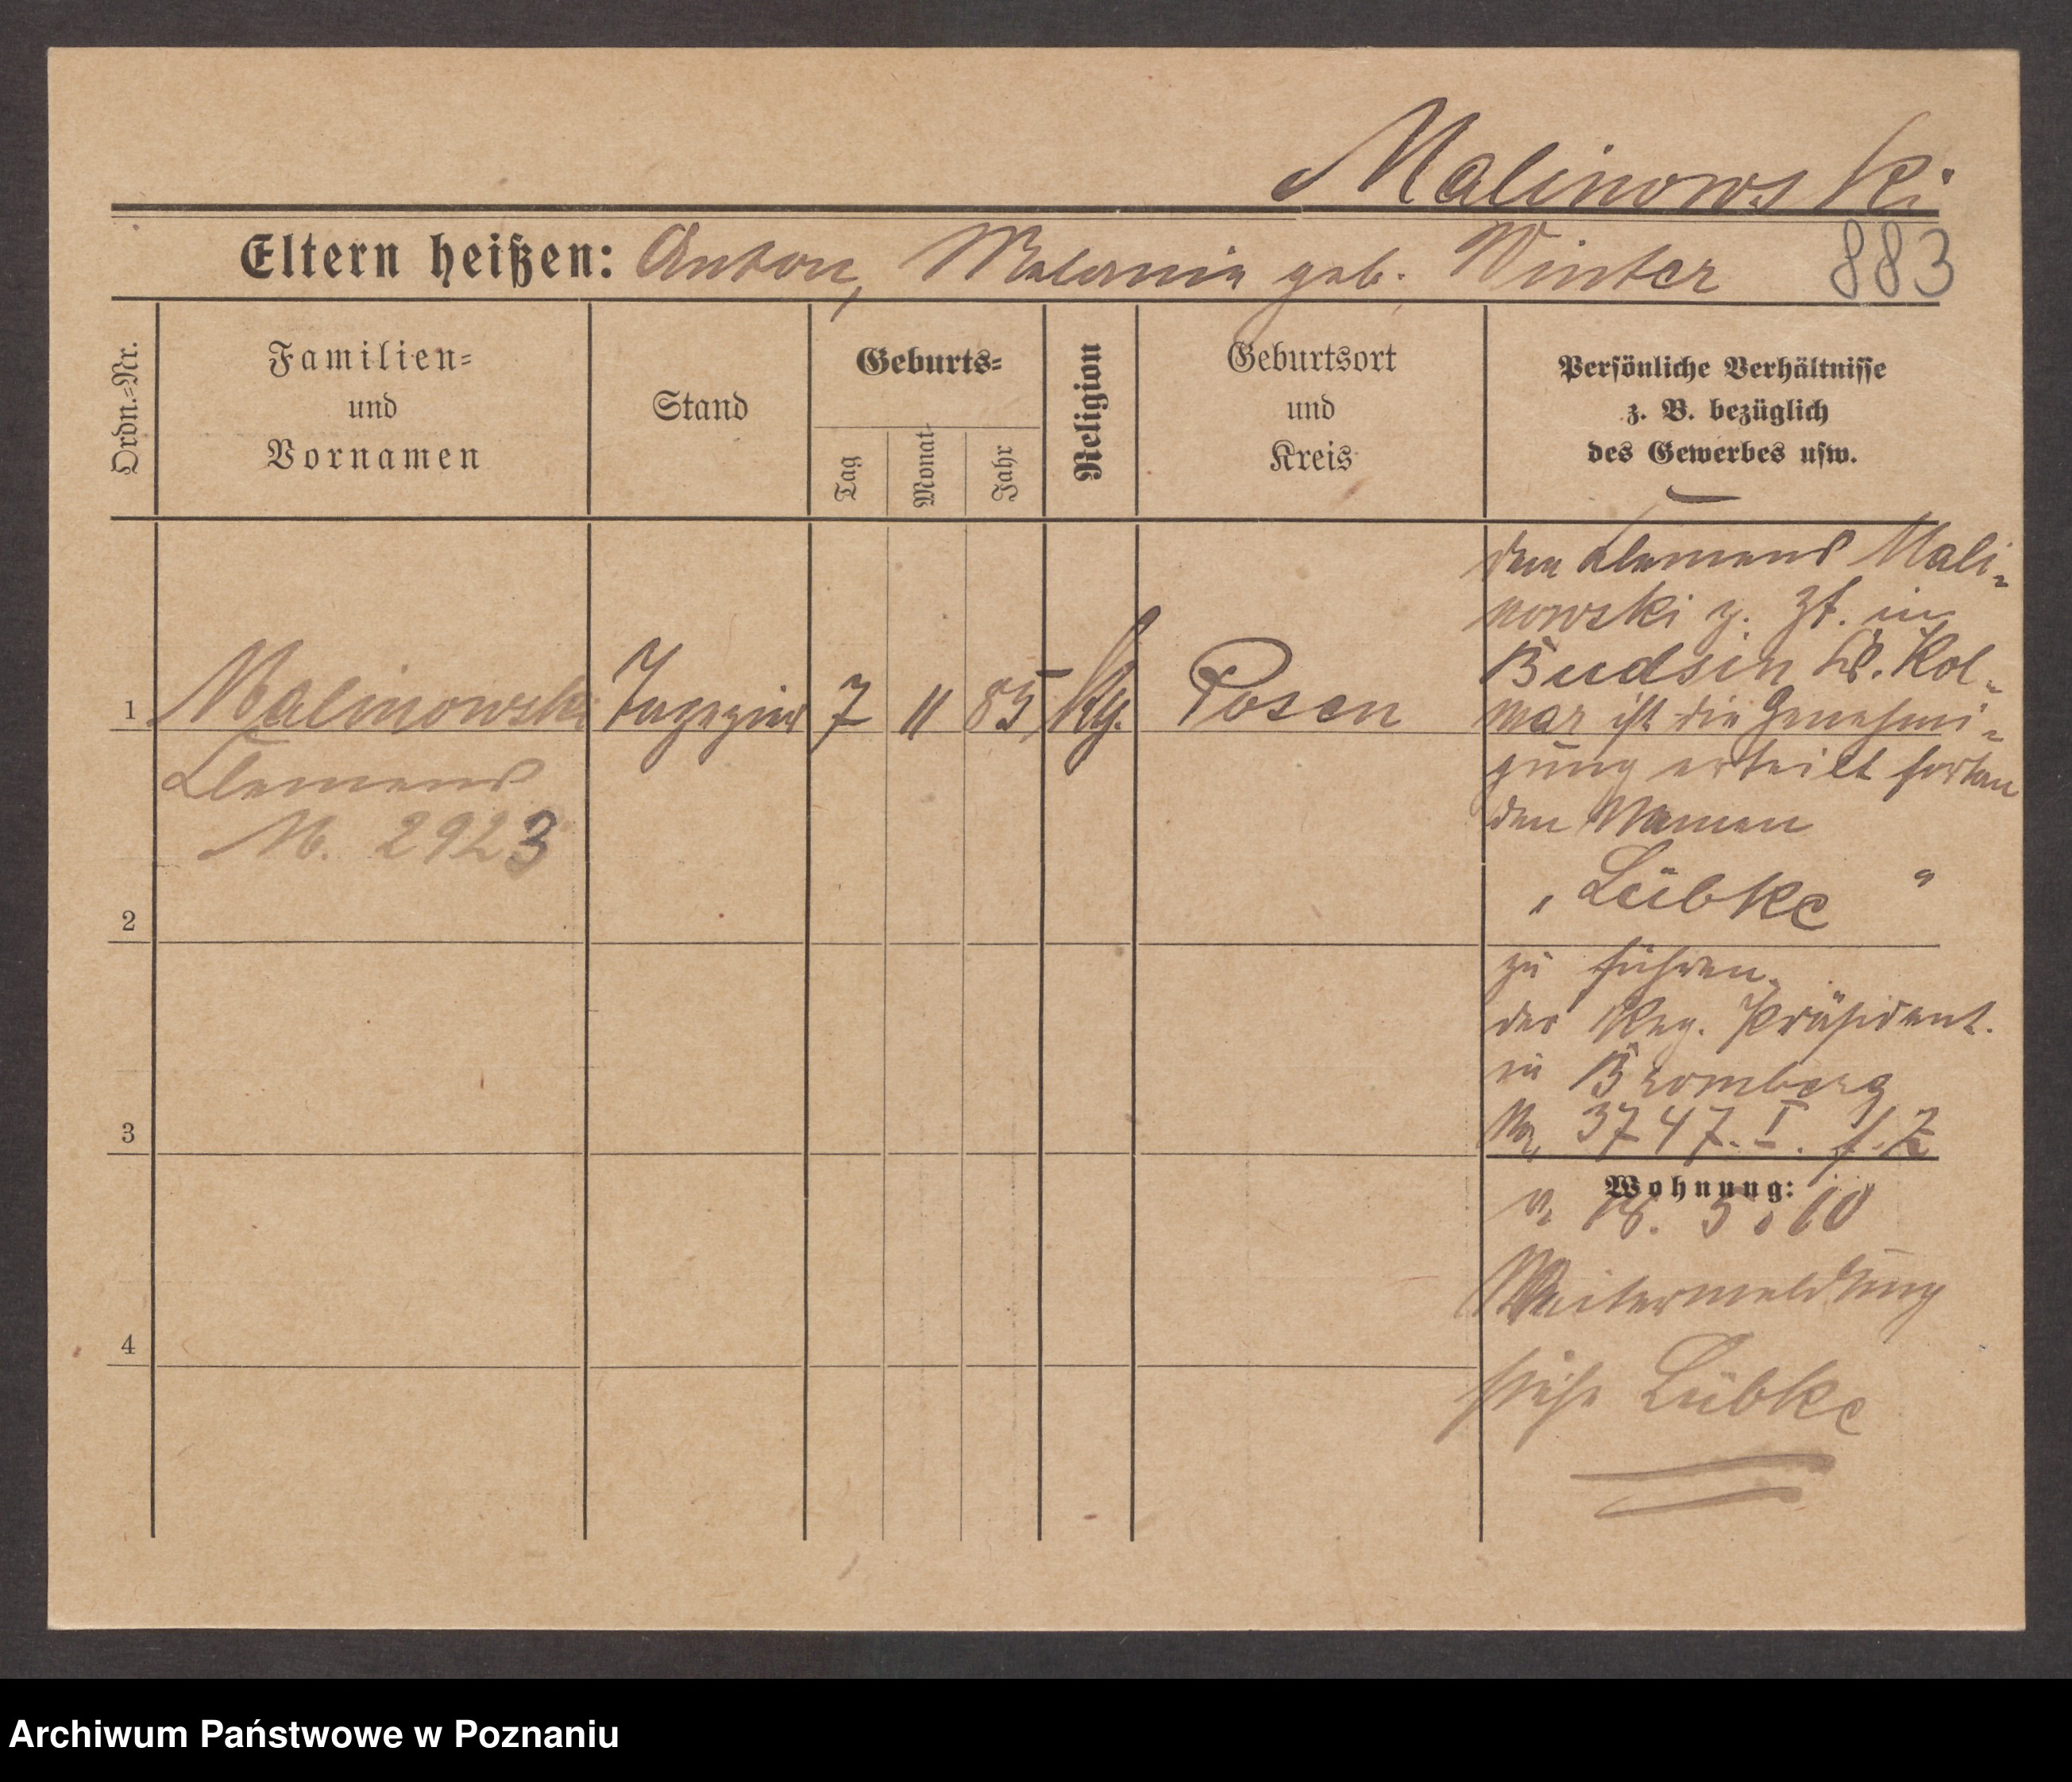 Malinowski
Eltern heißen: Anton, Melanie geb. Winter 883
Ordn.=Nr.
Familien=
und
Vornamen
Stand
Geburts=
Tag
Monat
Jahr
Religion
Geburtsort
und
Kreis
Persönliche Verhältnisse
z. B. bezüglich
des Gewerbes usw.
1 Malinowski 7 11 85 Posen
Clemens
M. 2923
2
3
4
dem Clemens Mali=
nowski z. Zt. in
Budsin Kr. Kol=
mar ist die Genehmi=
gung erteilt fortan
den Namen
„Lübke“
zu führen.
der Reg. Präsident.
in Bromberg
Nr. 3747. I. f. Z
Wohnung:
v. 18. 5. 10
Weitermeldung
siehe Lübke
Archiwum Państwowe w Poznaniu